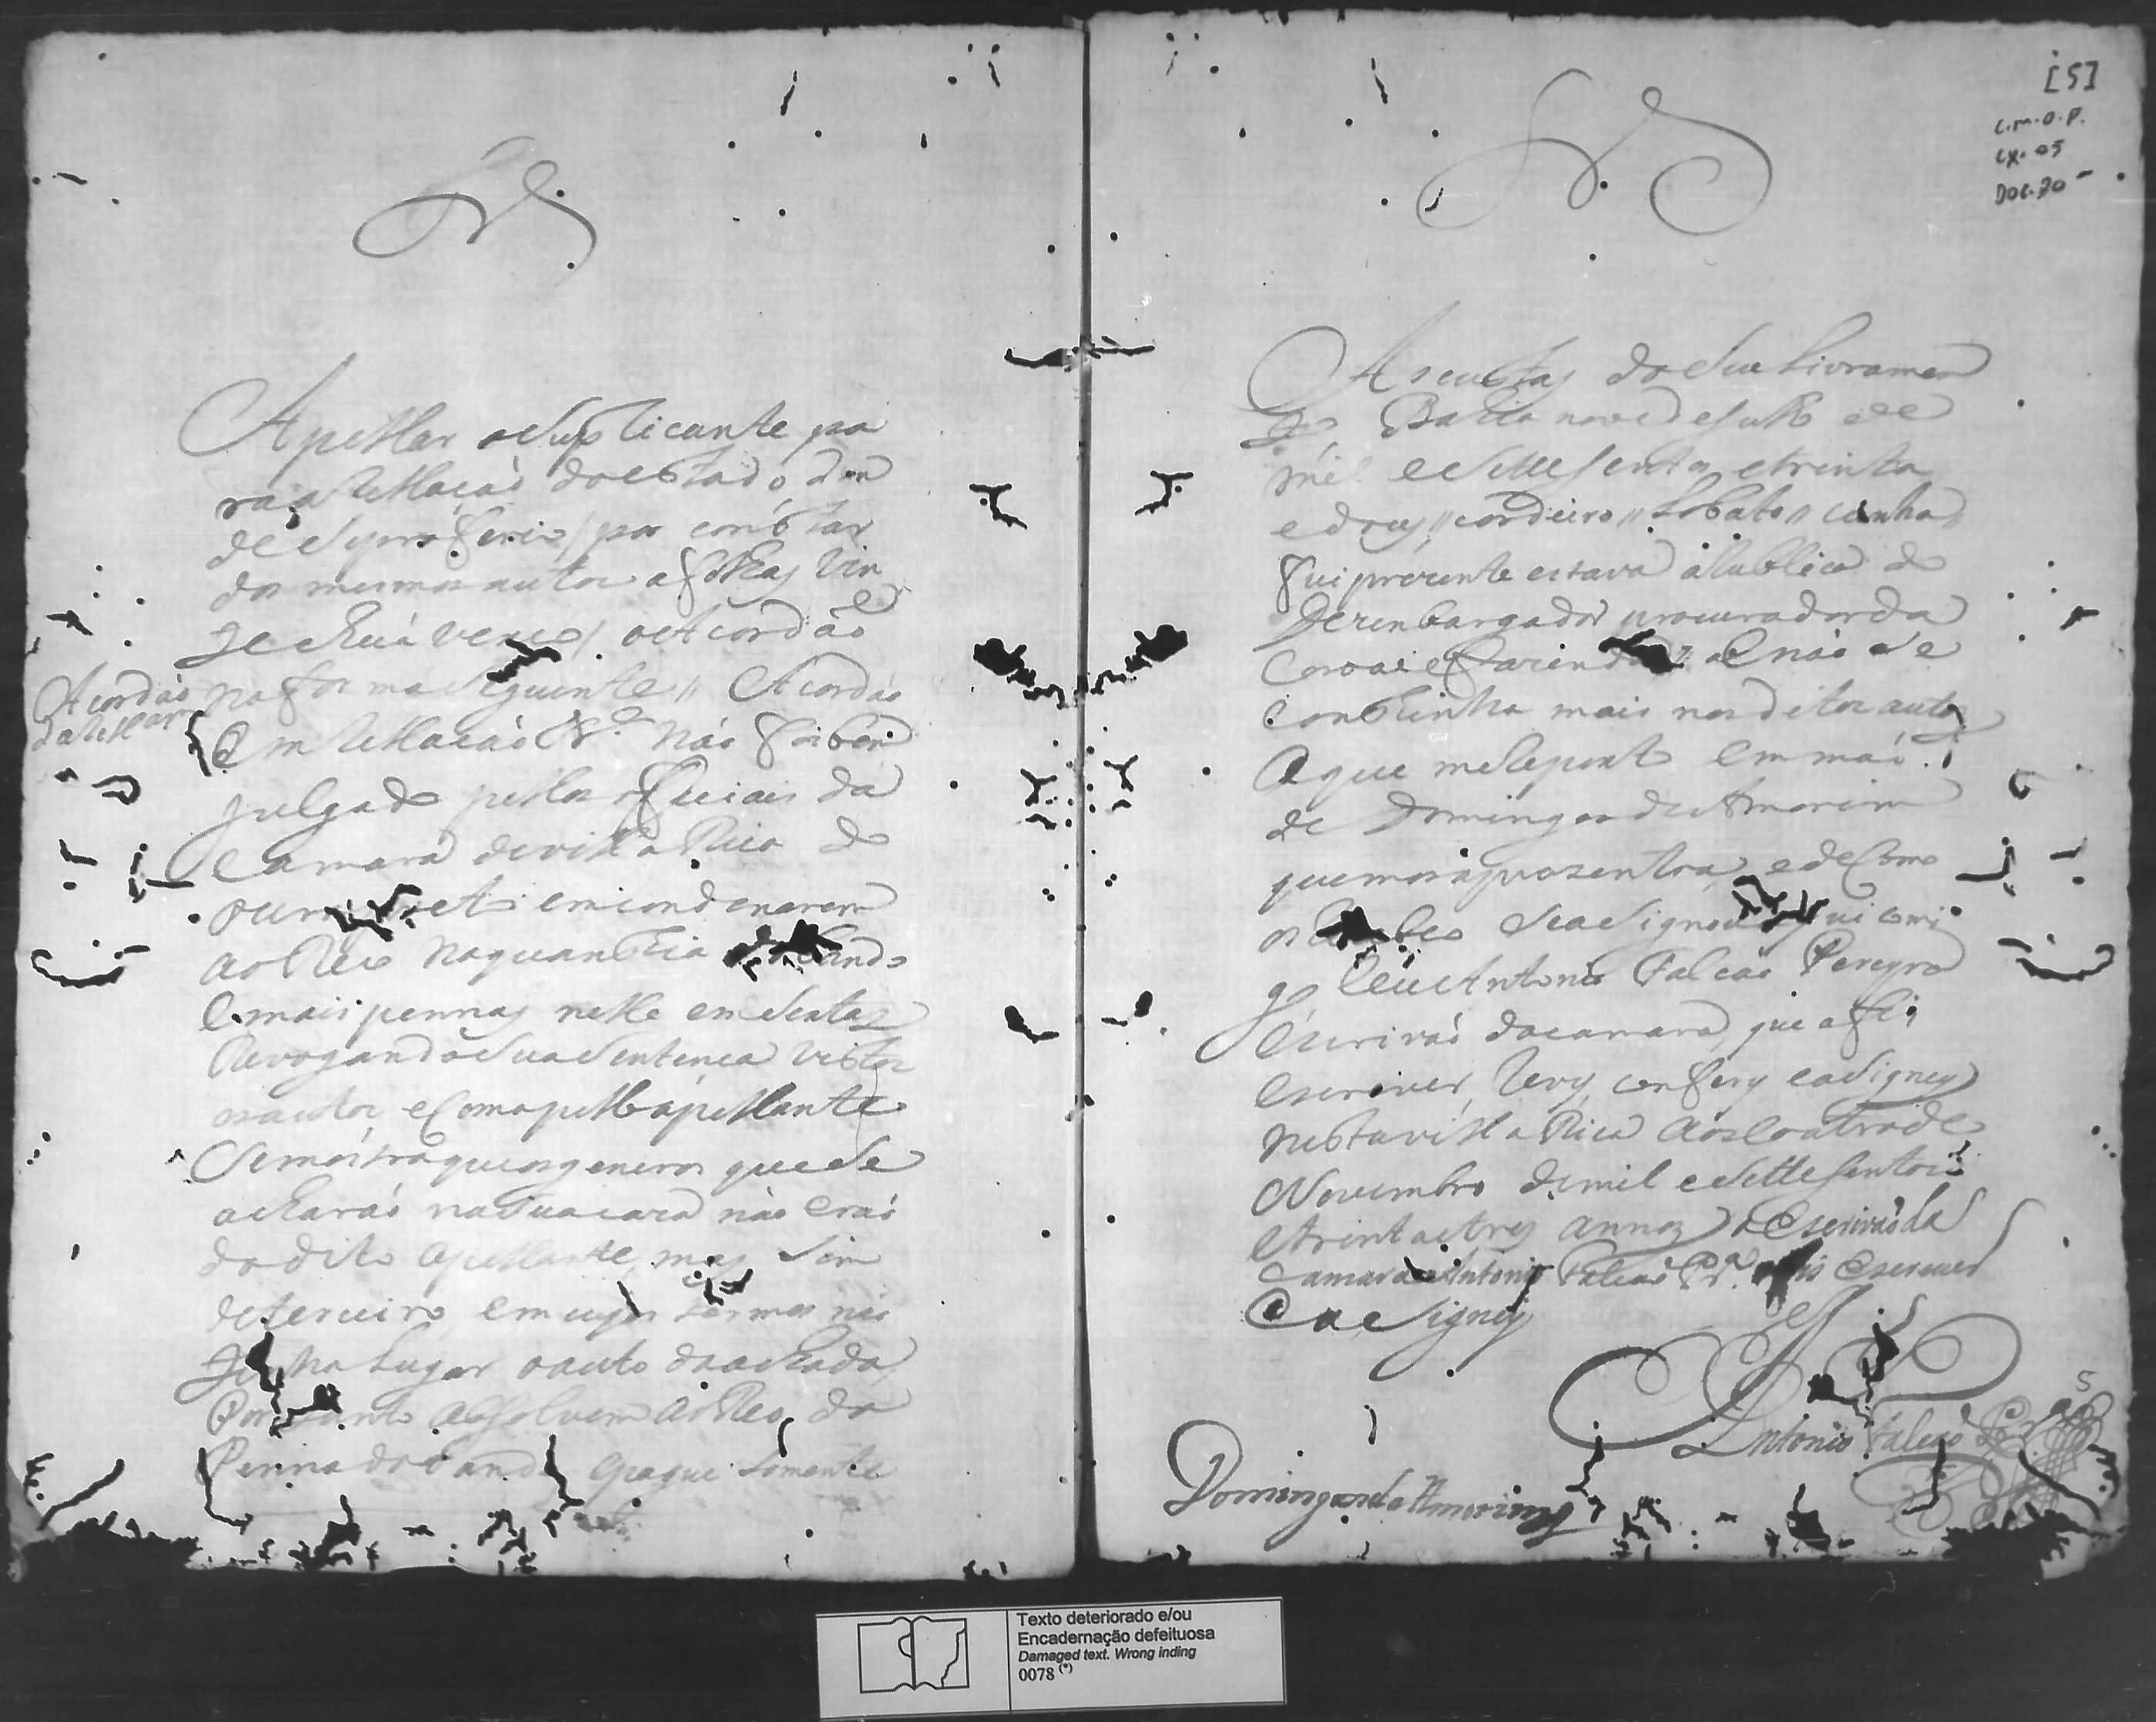 Apellar o Suplicante pa
ra a Rellação do estado don
de Se proferio / por constar
dos mesmos autos a folhas vin
te e huá verço / o Acordão
na forma Seguinte // Acordão
Acordão
da Rellaçam
Em Rellação &.ª Não foi bem
julgado pellos officiais da
Camara de villa Rica do
ouro em condenarem
ao Reo na quanthia bando
e mais pennas nelle
Revogando Sua Sentença vistos
os autos e como pello apellante
Se mostra que os generos que Se
acharão na Sua caza não erão
do dito apellante mas Sim
de terceiro em cujos termos não
tinha Lugar o auto da achada
Portanto absolvem ao Reo da
Penna do bando e pague Somente
[5]
C.M.O.P.
CX. 05
DOC. 70
As custas do Seu Livramen
to Bahia nove de Julho de
mil e Sette Sentos e trinta
e dous // Cordeiro // Lobato // Cunha //
fui prezente estava a Rubrica do
Dezembargador procurador da
Coroa e Fazenda // e não Se
continha mais nos ditos autos
a que me Reporto em mão
de Domingos de Amorim
que mos aprezentou, e de como
os Recebeo Se aSignou aqui comi
go E eu Antonio Falcão Pereyra
Escrivão da camara que a fis
escrever Sevy confery e aSigney
nesta villa Rica aos coatro de
Novembro de mil e Sette Sentos
e trinta e tres annos o Escrivão da
Camara Antonio Falcão Pr.ª o fis Escrever
E aSigney
Antonio Falcão
5
Domingos de Amorim
Texto deteriorado e/ou
Encadernação defeituosa
Damaged text. Wrong inding
0078 (*)